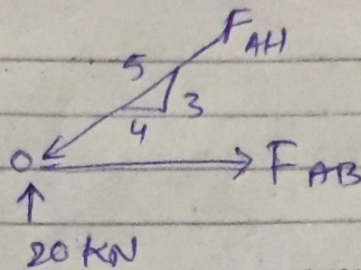 F AH
5
3
4
F AB
20 KN